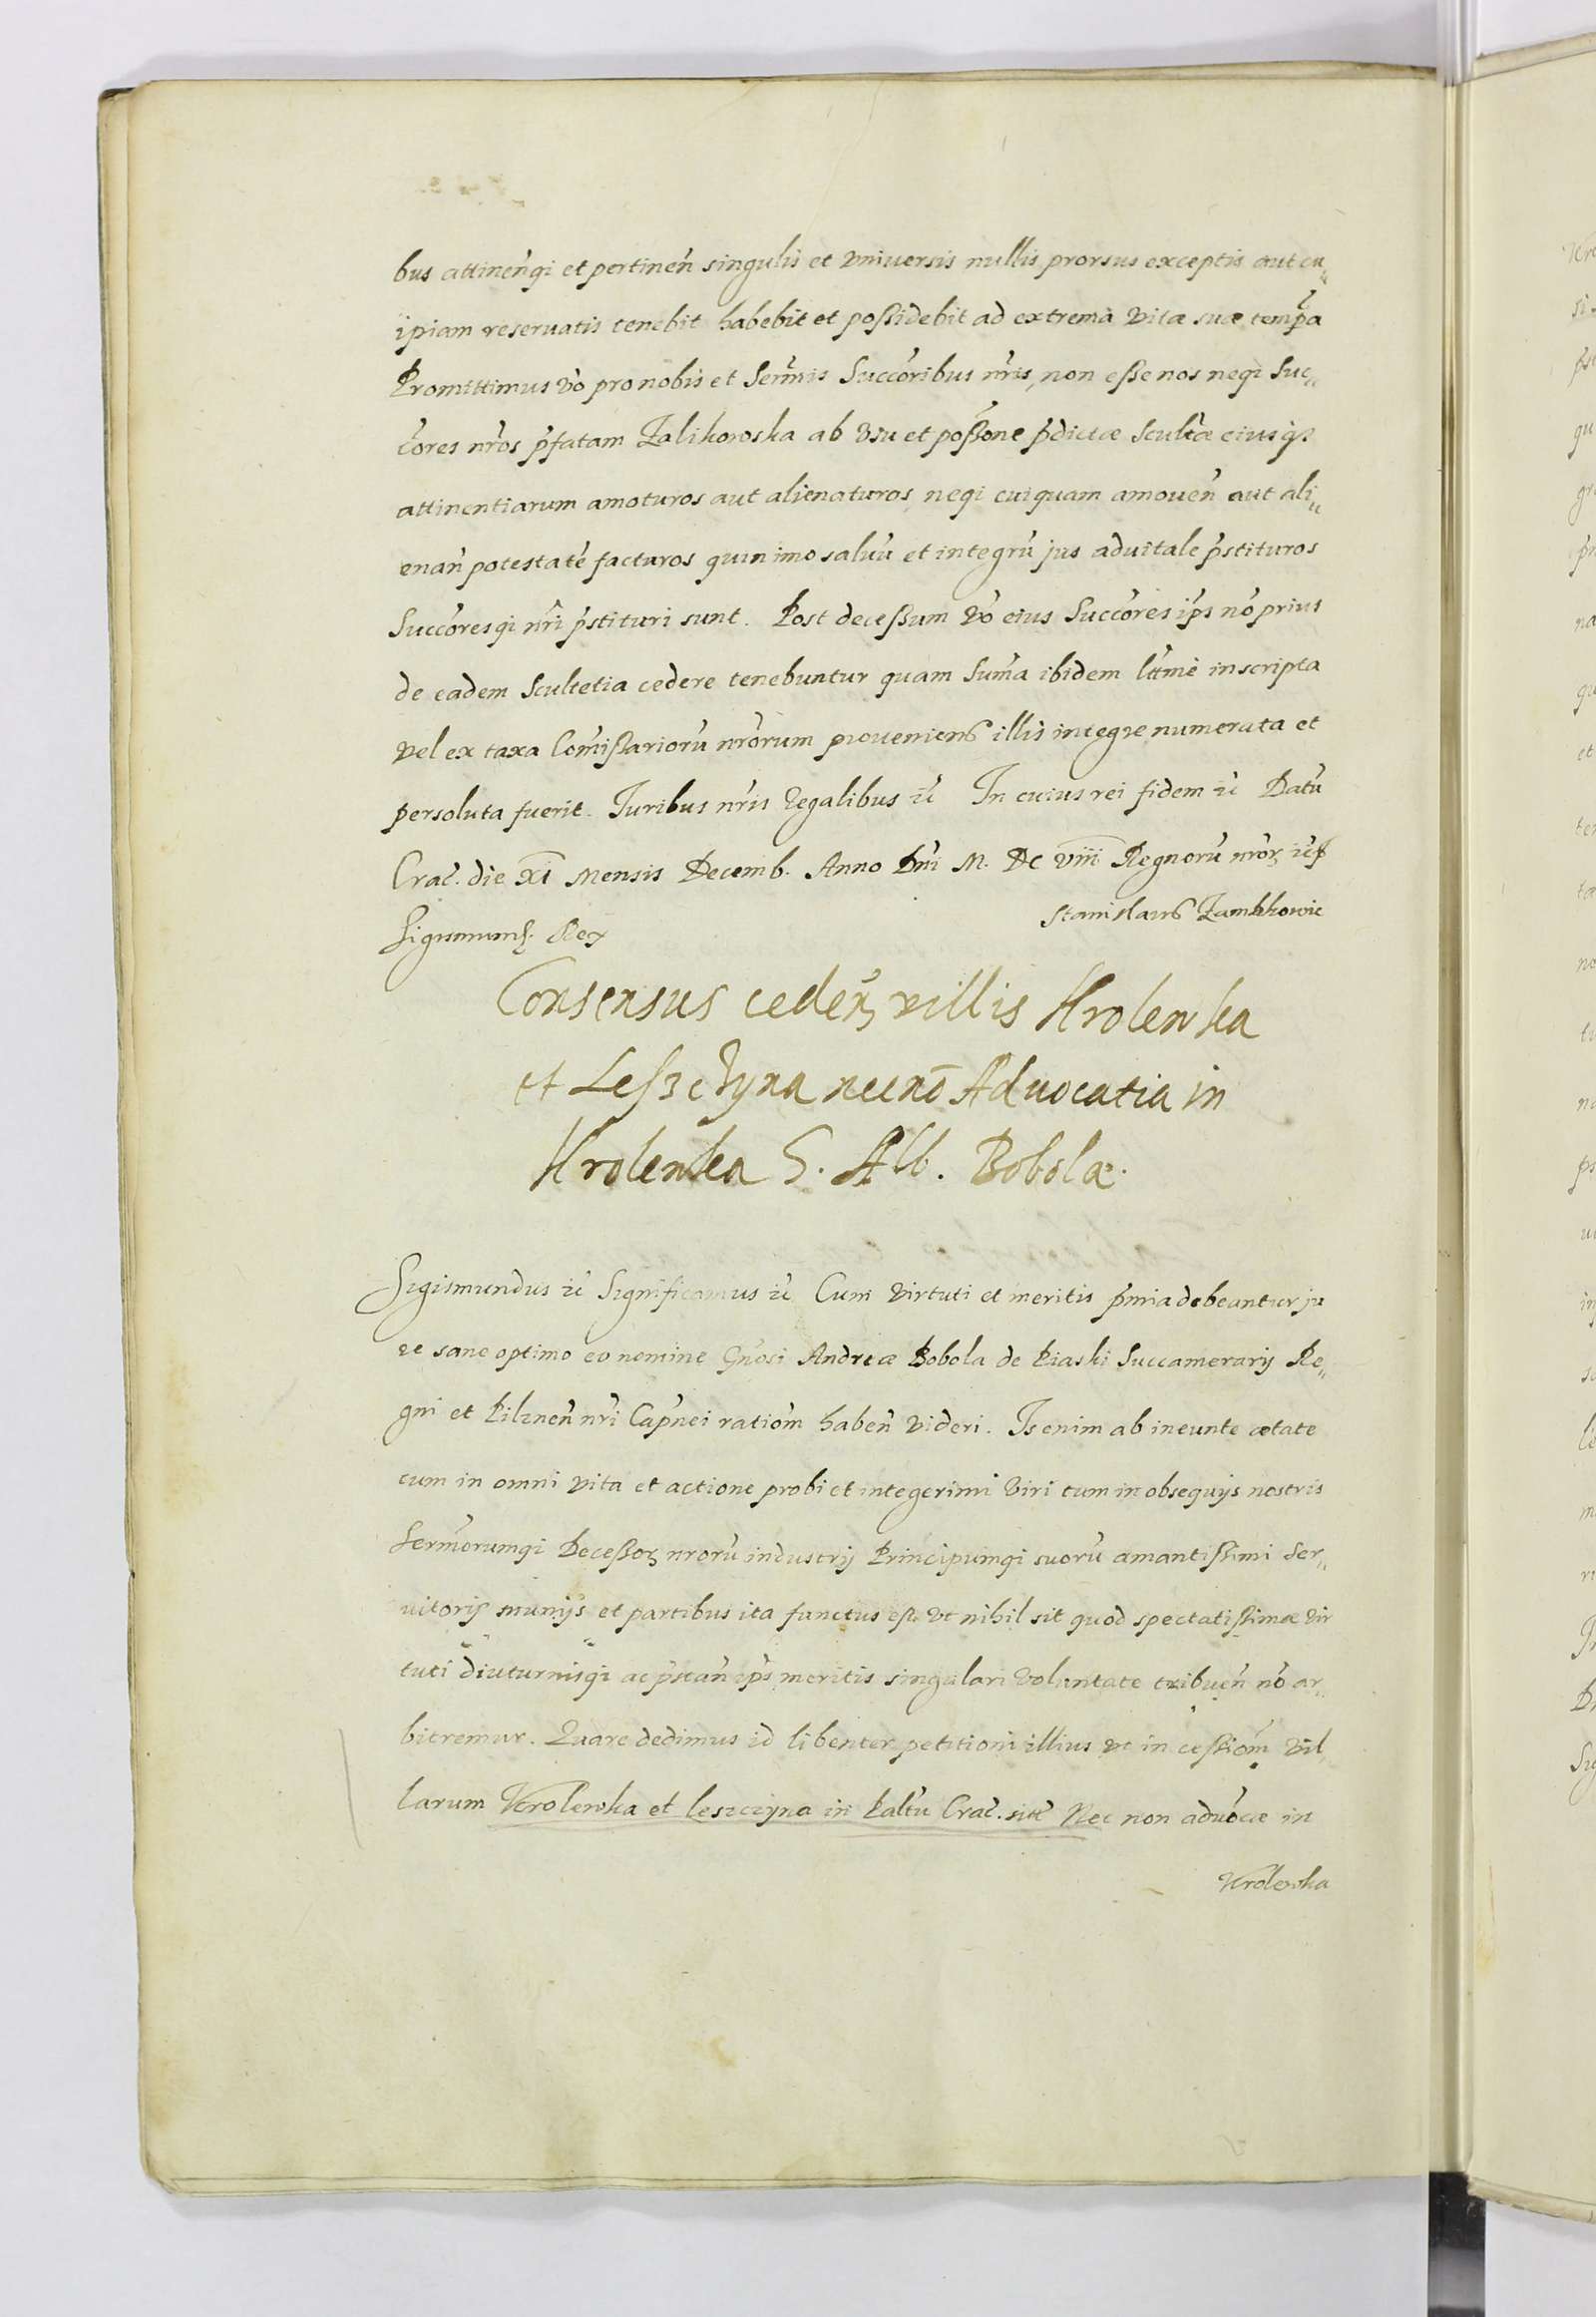 bus attinen̄qȝ et pertinen̄ singulis et vniuersis nullis prorsus exceptis aut cu„
ipiam reseruatis tenebit habebit et poßidebit ad extrema vitæ suæ temp̄a
Promittimus v̄o pro nobis et Serm̄is Succōribus nr̄is, non eße nos neqȝ Suc„
cōres nr̄os p̄fatam Zalikowska ab vsu et poßōne p̄dictæ Scult̄æ eiusqȝ
attinentiarum amoturos aut alienaturos, neqȝ cuiquam amouen̄ aut ali„
enan̄ potestatē facturos quin imo saluū et integrū jus aduitale p̄stituros
Succōresqȝ nr̄i p̄stituri sunt. Post deceßum v̄o eius Succōres ip̄s nō prius
de eadem Scultetia cedere tenebuntur quam Sum̄a ibidem ltt̄mè inscripta
vel ex taxa Com̄ißariorū nr̄orum proueniens illis integre numerata et
persoluta fuerit. Juribus nr̄is Regalibus ꝛc̄ In cuius rei fidem ꝛc̄ Datū
Crac̄. die xi Mensis Decemb. Anno Dn̄i M. DC viii Regnorū nr̄oꝝ ꝛc̄
Stanislaus Zamkhowic
Sigismund9 Rex
Consensus ceden̄ villis Krolewka
et Leßczyna necnō Aduocatia in
Krolewka G. Alb. Bobolæ.
Sigismundus ꝛc̄ Significamus ꝛc̄ Cum virtuti et meritis p̄mia debeantur ju
re sane optimo eo nomine Gn̄osi Andreæ Bobola de Piaski Succamerarij Re„
gni et Pilznen̄ nr̄i Cap̄nei ratiōm haben̄ videri. Is enim ab ineunte ætate
cum in omni vita et actione probi et integerimi viri tum in obsequijs nostris
Serm̄orumqȝ Deceßoꝝ nrorū industrij Principumqȝ suorū amantißimi Ser„
uitoris munijs et partibus ita functus est vt nihil sit quod spectatißimæ vir
tuti diuturnisqȝ ac p̄stan̄ ip̄s meritis singulari voluntate tribuen̄ nō ar„
bitremur. Quare dedimus id libenter petitioni illius vt in ceßiōm vil„
larum Krolewka et Leszczyna in Paltū Crac̄. sitt̄ Nec non aduōcæ in
Krolewka